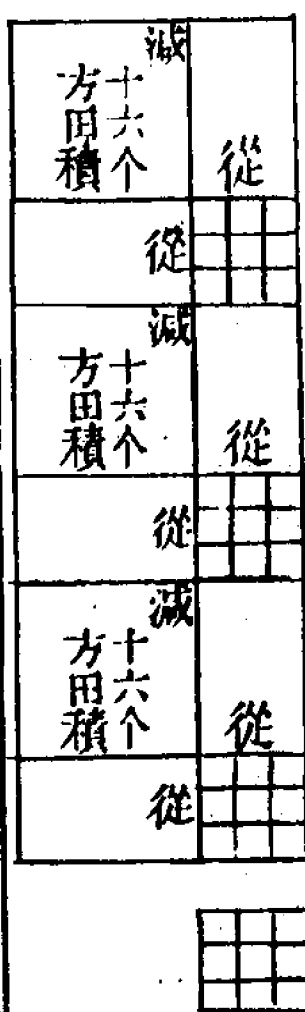 從
減
十六个
方田積
從
從
減
十六个
方田積
從
從
減
十六个
方田積
從